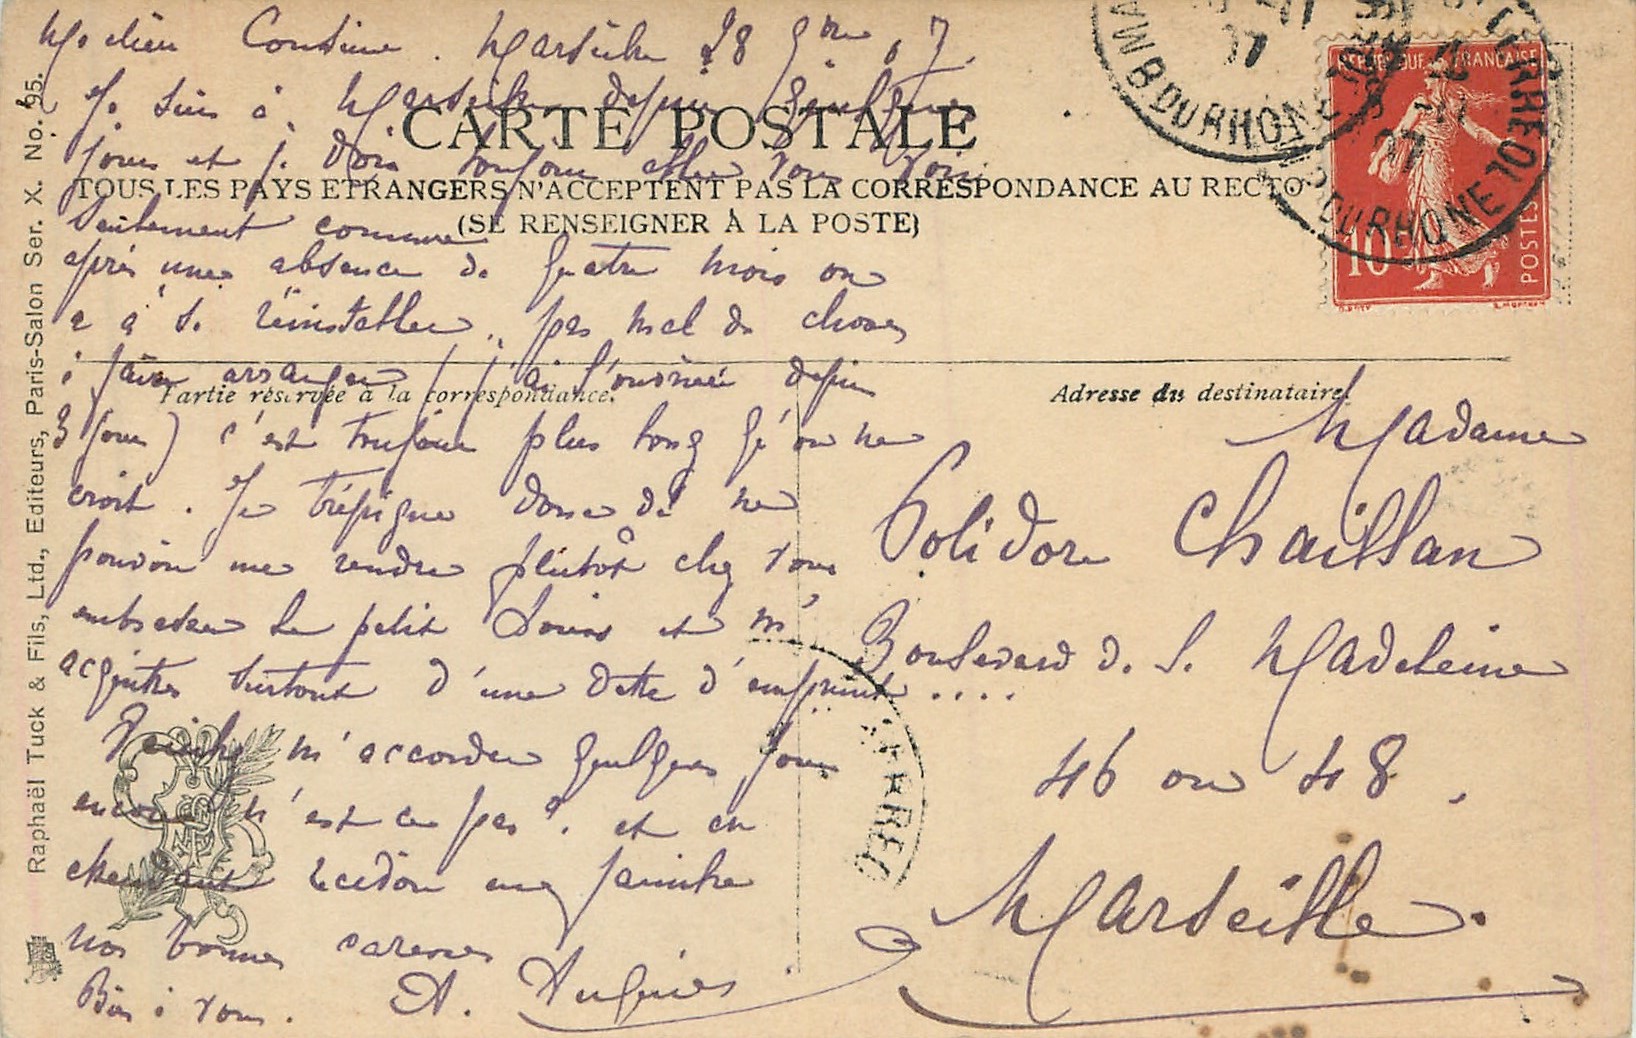 Marseille 28 9bre 07.
Je suis à Marseille depuis quelques
CARTE POSTALE
jours et je dois toujours aller vous voir
TOUS LES PAYS ETRANGERS N'ACCEPTENT PAS LA CORRESPONDANCE AU RECTO
(SE RENSEIGNER A LA POSTE)
seulement comme
après une absence de quatre mois on
a à se réinstaller, pas mal de choses
à faire arranger (j'ai l'ouvrière depuis
Partie réservée à la correspondance.
3 jours) c'est toujours plus long qu'on ne
croit. Je trépigne donc de ne
pouvoir me rendre plutôt chez vous
embrasser le petit Louis et m'
acquitter surtout d'une dette d'emprunt....
m'accorder quelques jours
encore n'est ce pas? et en
attendant recevoir ma
nos bonnes caresses
Bien à vous. A.
Adresse du destinataire.
Madame
Polidore Chaillan
Boulevard de la Madeleine
46 ou 48,
Marseille.
REPUBLIQUE FRANÇAISE
10
POSTES
B DU RHONE
Raphaël Tuck & Fils, Ltd., Editeurs, Paris-Salon Ser. X. No. 95.